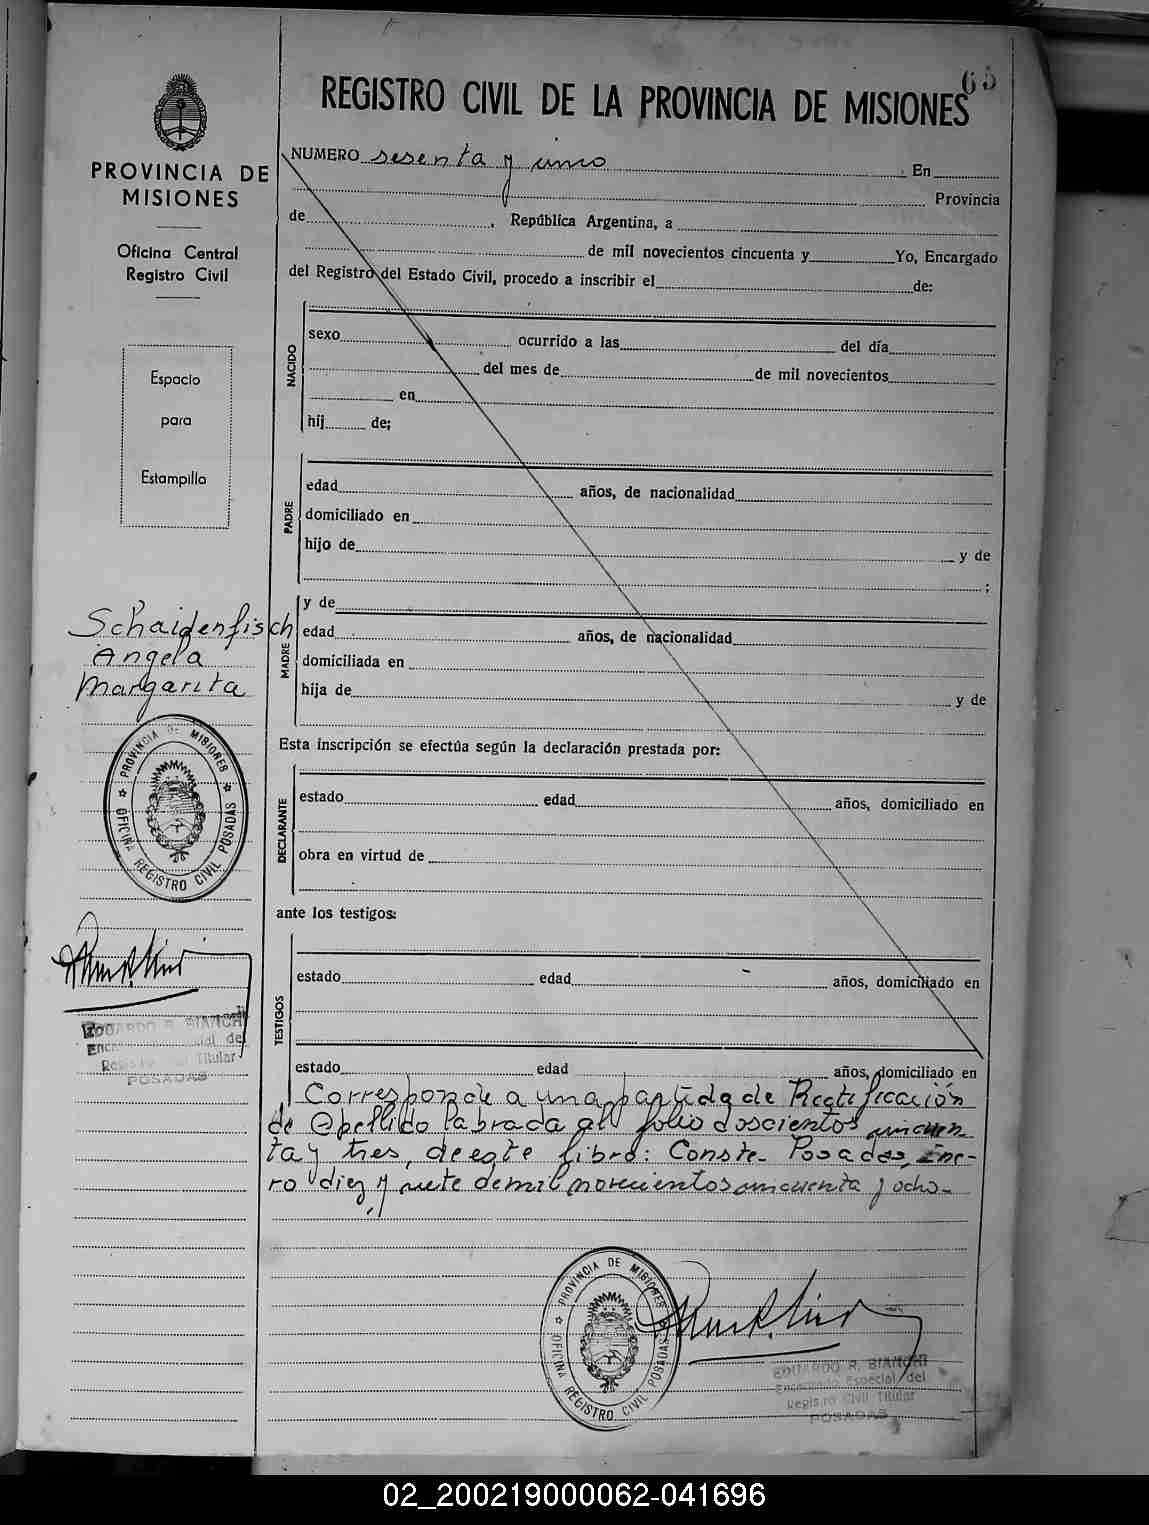 65
REGISTRO CIVIL DE LA PROVINCIA DE MISIONES
PROVINCIA DE
MISIONES
Oficina Central
Registro Civil
Espacio
para
Estampilla
NUMERO sesenta y uno En
Provincia
de , República Argentina, a
de mil novecientos cincuenta y Yo, Encargado
del Registro del Estado Civil, procedo a inscribir el de:
NACIDO
sexo ocurrido a las del día
del mes de de mil novecientos
en
hij de;
PADRE
edad años, de nacionalidad
domiciliado en
hijo de y de
;
MADRE
y de
edad años, de nacionalidad
domiciliada en
hija de y de
Schaidenfisch
Angela
Margarita
PROVINCIA DE MISIONES
OFICINA REGISTRO CIVIL POSADAS
EDUARDO R. BIANCHI
Encargado Especial del
Registro Civil Titular
POSADAS
Esta inscripción se efectúa según la declaración prestada por:
DECLARANTE
estado edad años, domiciliado en
obra en virtud de
ante los testigos:
TESTIGOS
estado edad años, domiciliado en
estado edad años, domiciliado en
Corresponde a una partida de Rectificación
de Apellido labrada al folio doscientos cincuen-
ta y tres, de este libro: Conste. Posadas, Ene-
ro diez y siete de mil novecientos cincuenta y ocho-
PROVINCIA DE MISIONES
OFICINA REGISTRO CIVIL POSADAS
EDUARDO R. BIANCHI
Encargado Especial del
Registro Civil Titular
POSADAS
02_200219000062-041696